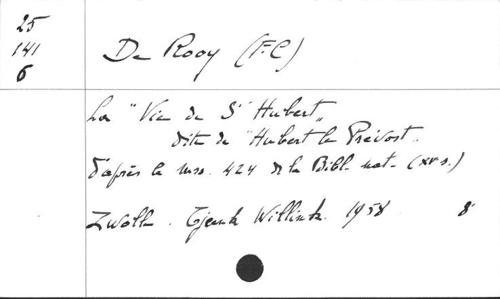 25
141
6
De Rooy (F.C)
La "Vie de St Hubert"
dite de "Hubert le Prevost"
d'après le mss. 424 de la Bibl. nat. (XV s.)
Zwolle. Tjeenk Willink. 1958 8°